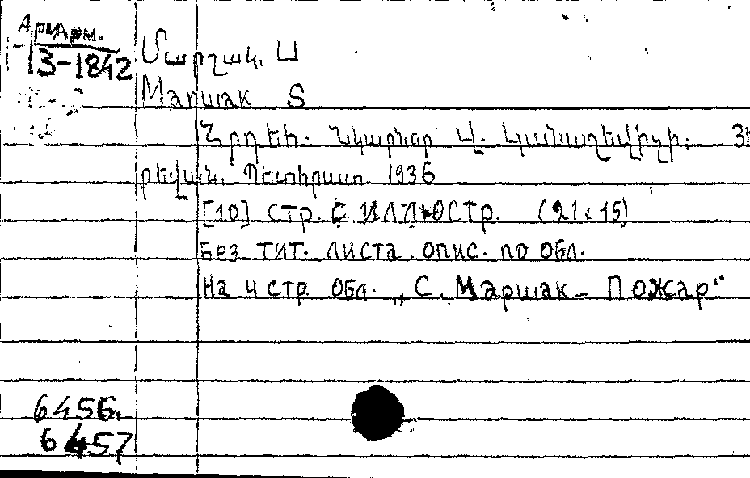 АрмАрм.
3-1842
Մարշակ, Ս
Маршак S
Հրդեհ. Նկարներ Վ.
րեվան, Պետհրատ 1936
[10] стр. с иллюстр. (21 × 15)
Без тит. листа. опис. по обл.
На 4 стр обл. „С. Маршак – Пожар"
6456.
6457